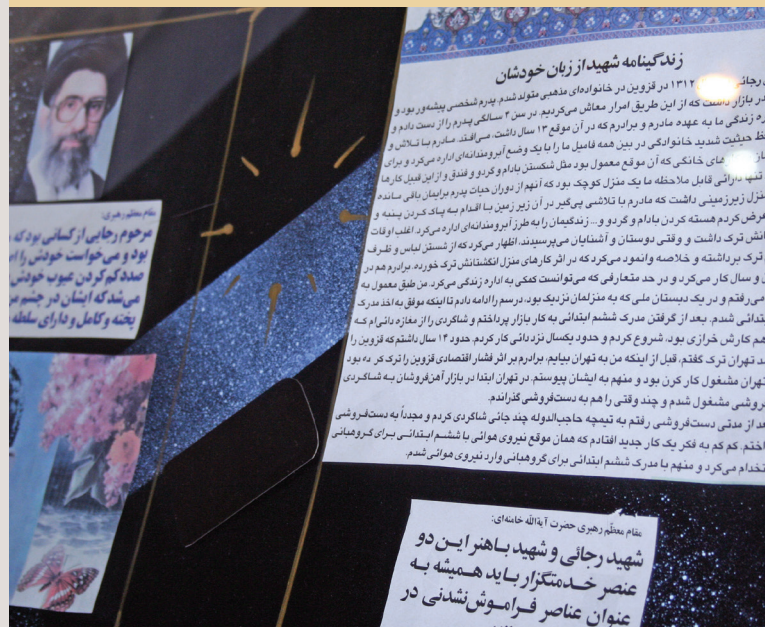 زندگینامه شهید از زبان خودشان
رجائی ۱۳۱۲ در قزوین در خانواده‌ای مذهبی متولد شدم. پدرم شخصی پیشه‌ور بود و
در بازار داشت که از این طریق امرار معاش می‌کردیم. در سن ۴ سالگی پدرم را از دست دادم و
ره زندگی ما به عهده مادرم و برادرم که در آن موقع ۱۳ سال داشت، می‌افتد. مادرم با تلاش و
حیثیت شدید خانوادگی در بین همه فامیل ما را با یک وضع آبرومندانه‌ای اداره می‌کرد و برای
های خانگی که آن موقع معمول بود مثل شکستن بادام و گردو و فندق و از این قبیل کارها
تنها دارائی قابل ملاحظه ما یک منزل کوچک بود که آنهم از دوران حیات پدرم برایمان باقی مانده
منزل زیرزمینی داشت که مادرم با تلاشی پی‌گیر در آن زیر زمین با اقدام به پاک کردن پنبه و
عرض کردم هسته کردن بادام و گردو و... زندگیمان را به طرز آبرومندانه‌ای اداره می‌کرد. اغلب اوقات
ترک داشت و وقتی دوستان و آشنایان می‌پرسیدند، اظهار می‌کرد که از شستن لباس و ظرف
ترک برداشته و خلاصه وانمود می‌کرد که در اثر کارهای منزل انگشتانش ترک خورده. برادرم هم در
و سال کار می‌کرد و در حد متعارفی که می‌توانست کمکی به اداره زندگی می‌کرد. من طبق معمول به
می‌رفتم و در یک دبستان ملی که به منزلمان نزدیک بود، درسم را ادامه دادم تا اینکه موفق به اخذ مدرک
شدم. بعد از گرفتن مدرک ششم ابتدائی به کار بازار پرداختم و شاگردی را از مغازه دائی‌ام که
هم کارش خرازی بود، شروع کردم و حدود یکسال نزد دائی کار کردم. حدود ۱۴ سال داشتم که قزوین را
تهران ترک گفتم، قبل از اینکه من به تهران بیایم، برادرم بر اثر فشار اقتصادی قزوین را ترک کر ده بود
تهران مشغول کار کرن بود و منهم به ایشان پیوستم. در تهران ابتدا در بازار آهن‌فروشان به شاگردی
مشغول شدم و چند وقتی را هم به دست‌فروشی گذراندم.
بعد از مدتی دست‌فروشی رفتم به تیمچه حاجب‌الدوله چند جائی شاگردی کردم و مجدداً به دست‌فروشی
کم کم به فکر یک کار جدید افتادم که همان موقع نیروی هوائی با ششم ابتدائی برای گروهبانی
می‌کرد و منهم با مدرک ششم ابتدائی برای گروهبانی وارد نیروی هوائی شدم.
مقام معظم رهبری:
مرحوم رجایی از کسانی بود که
بود و می‌خواست خودش را
صدد کم کردن عیوب خودش
می‌شد که ایشان در چشم
پخته و کامل و دارای سلطه
مقام معظّم رهبری حضرت آیةالله خامنه‌ای:
شهید رجائی و شهید باهنر این دو
عنصر خدمتگزار باید همیشه به
عنوان عناصر فراموش‌نشدنی در